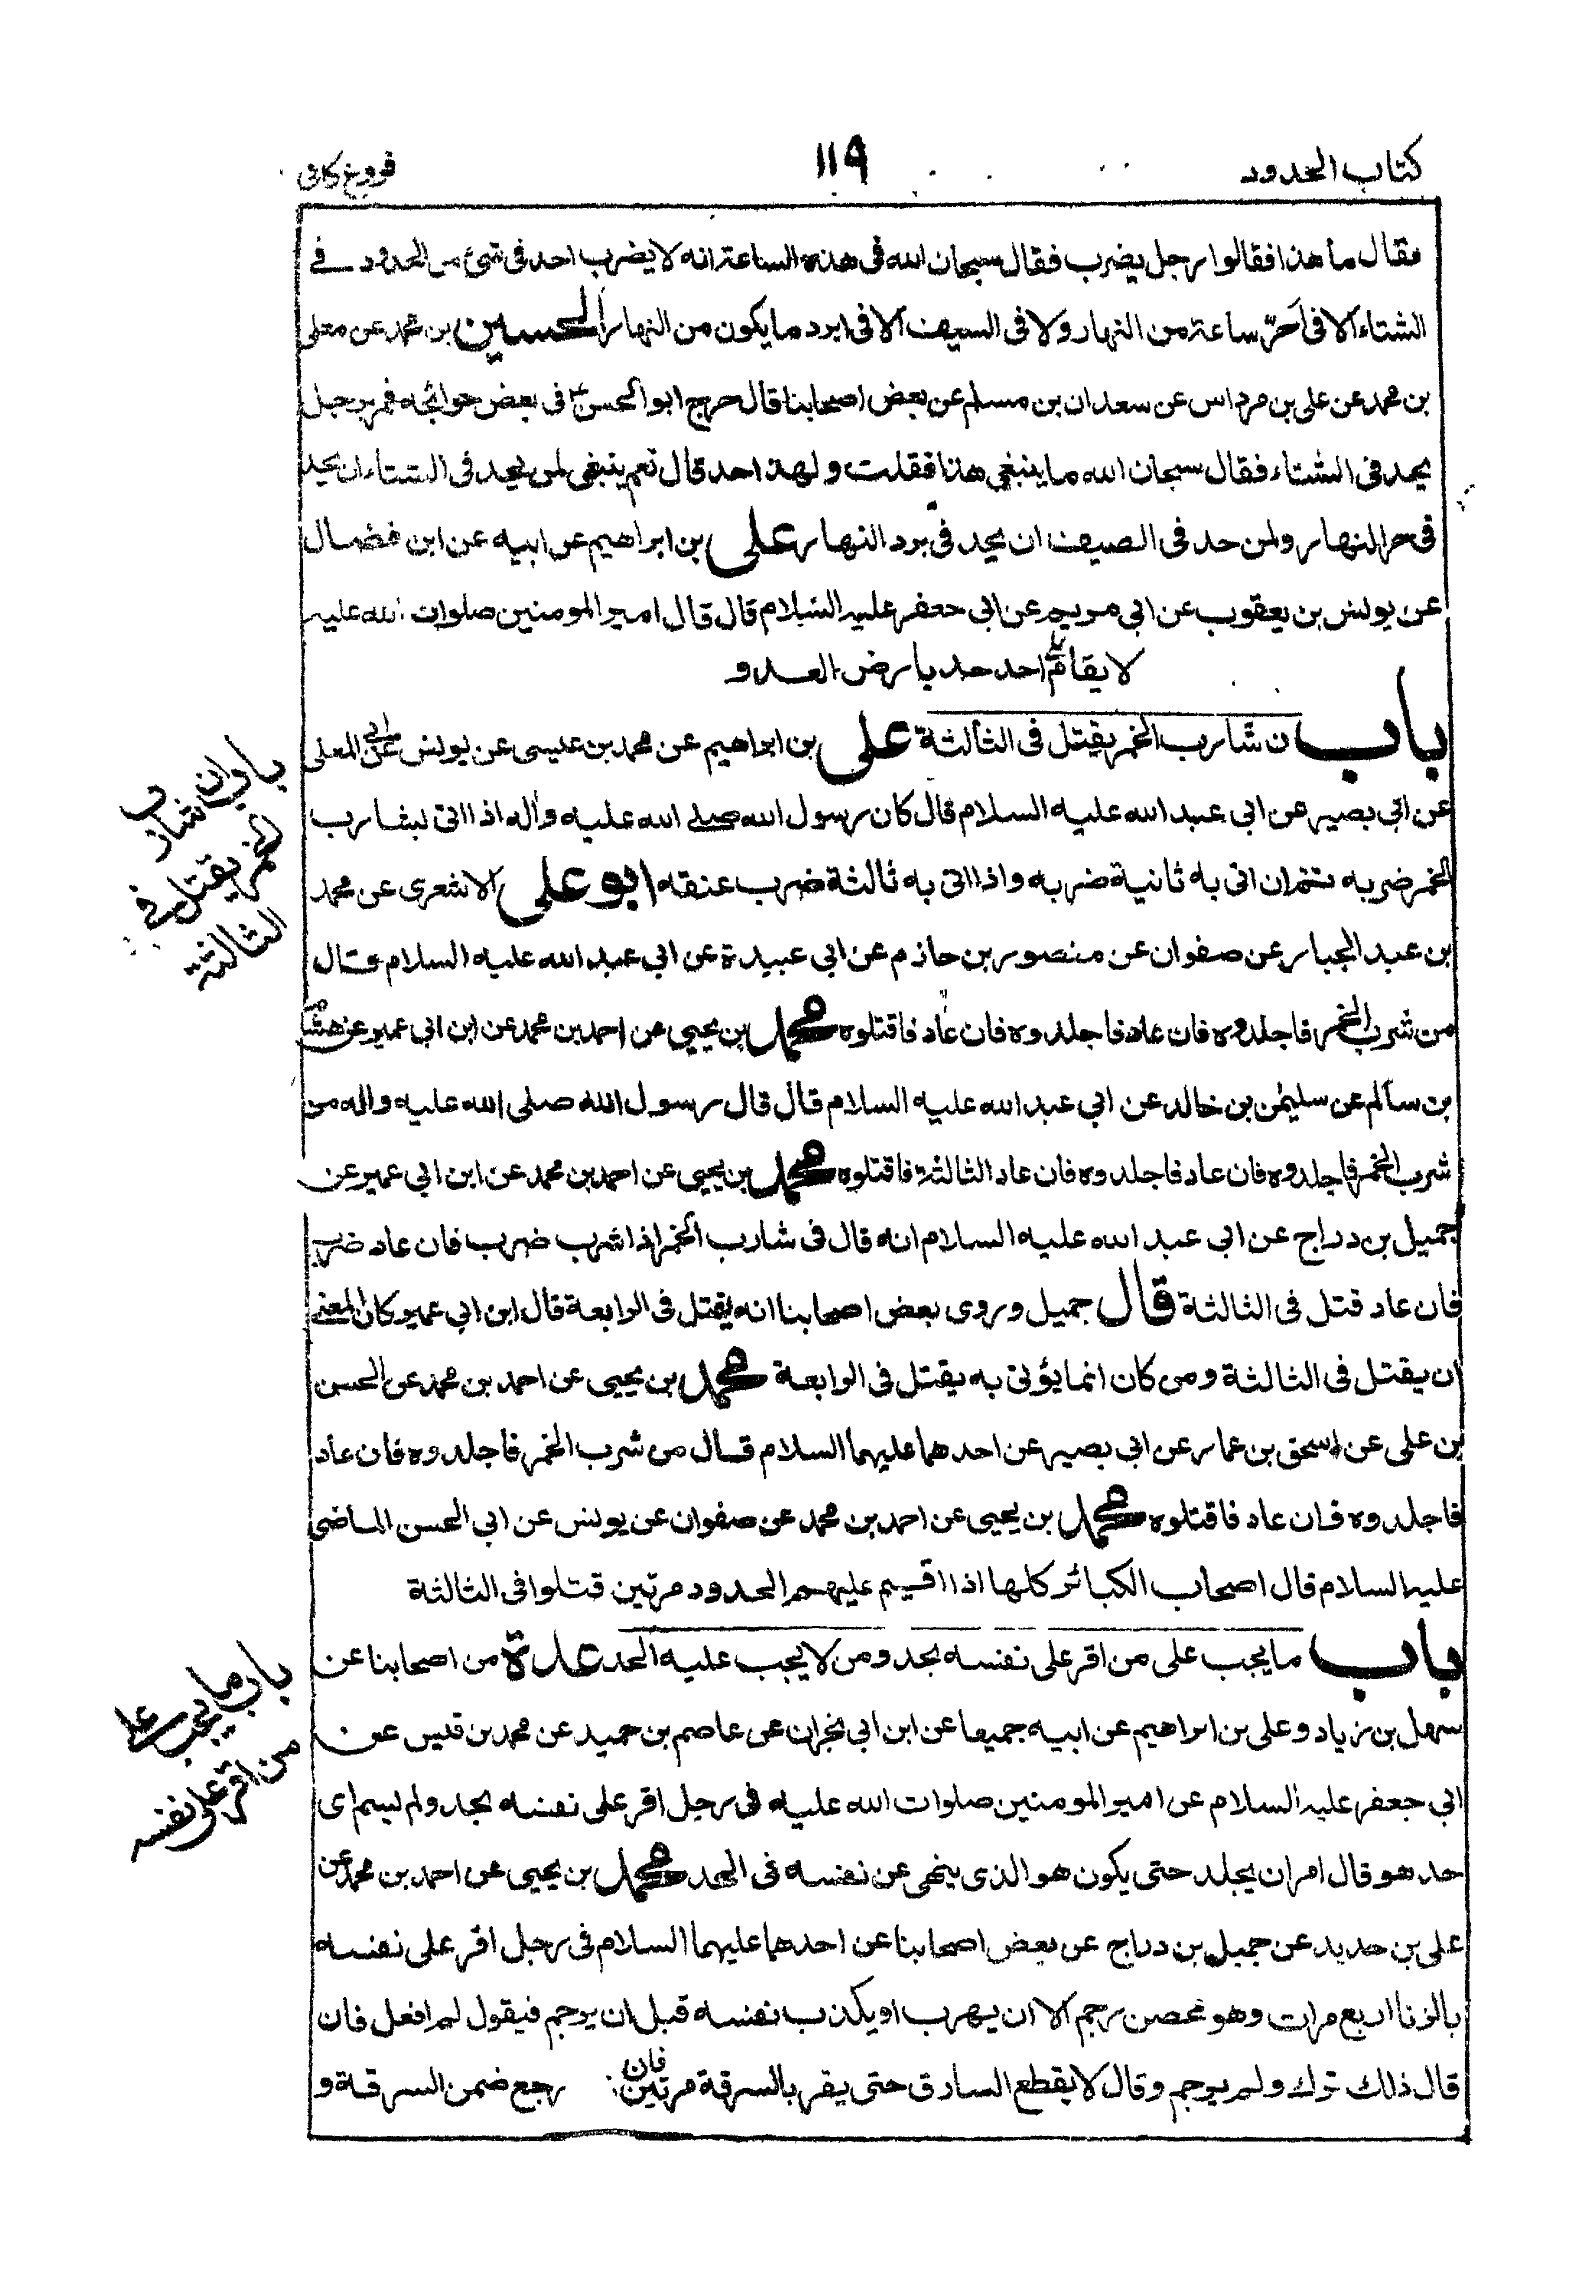 كتاب الحدود
١١٩
فروع كافى
فقال ما هذا فقالوا رجل يضرب فقال سبحان الله فى هذه الساعة انه لا يضرب احد فى شئ من الحدود فے
الشتاء الا فى احرّ ساعة من النهار ولا فى الصيف الا فى ابرد ما يكون من النهار الحسين بن محمد عن معلى
بن محمد عن على بن مرداس عن سعدان بن مسلم عن بعض اصحابنا قال خرج ابو الحسن ع فى بعض حوائجه فمر برجل
يحد فى الشتاء فقال سبحان الله ما ينبغي هذا فقلت ولهذا حد قال نعم ينبغى لمن يحد فى الشتاء ان يحد
فى حر النهار ولمن حد فى الصيف ان يحد فى برد النهار على بن ابراهيم عن ابيه عن ابن فضال
عن يونس بن يعقوب عن ابى مريم عن ابى جعفر عليه السلام قال قال امير المومنين صلوات الله عليه
لا يقام على احد حد بارض العدو
باب ان شارب الخمر يقتل فى الثالثة على بن ابراهيم عن محمد بن عيسى عن يونس عن ابى المعلى
عن ابى بصير عن ابى عبد الله عليه السلام قال كان رسول الله صلے الله عليه واله اذا اتى بشارب
الخمر ضربه ثم ان اتى به ثانية ضربه واذا اتى به ثالثة ضرب عنقه ابو على الاشعرى عن محمد
بن عبد الجبار عن صفوان عن منصور بن حازم عن ابى عبيدة عن ابى عبد الله عليه السلام قال
من شرب الخمر فاجلدوه فان عاد فاجلدوه فان عاد فاقتلوه محمد بن يحيى عن احمد بن محمد عن ابن ابى عمير عن هشام
بن سالم عن سليمن بن خالد عن ابى عبد الله عليه السلام قال قال رسول الله صلى الله عليه واله من
شرب الخمر فاجلدوه فان عاد فاجلدوه فان عاد الثالثة فاقتلوه محمد بن يحيى عن احمد بن محمد عن ابن ابى عمير عن
جميل بن دراج عن ابى عبد الله عليه السلام انه قال فى شارب الخمر اذا شرب ضرب فان عاد ضرب
فان عاد قتل فى الثالثة قال جميل وروى بعض اصحابنا انه يقتل فى الرابعة قال ابن ابى عمير كان المعنى
ان يقتل فى الثالثة ومن كان انما يؤتى به يقتل فى الرابعة محمد بن يحيى عن احمد بن محمد عن الحسن
بن على عن اسحق بن عمار عن ابى بصير عن احدهما عليهما السلام قال من شرب الخمر فاجلدوه فان عاد
فاجلدوه فان عاد فاقتلوه محمد بن يحيى عن احمد بن محمد عن صفوان عن يونس عن ابى الحسن الماضى
عليه السلام قال اصحاب الكبائر كلها اذا اقيم عليهم الحدود مرتين قتلوا فى الثالثة
باب ما يجب على من اقر على نفسه بحد ومن لا يجب عليه الحد عدة من اصحابنا عن
سهل بن زياد وعلى بن ابراهيم عن ابيه جميعا عن ابن ابى نجران عن عاصم بن حميد عن محمد بن قيس عن
ابى جعفر عليه السلام عن امير المومنين صلوات الله عليه فى رجل اقر على نفسه بحد ولم يسم اى
حد هو قال امر ان يجلد حتى يكون هو الذى ينهى عن نفسه فى الحد محمد بن يحيى عن احمد بن محمد عن
على بن حديد عن جميل بن دراج عن بعض اصحابنا عن احدهما عليهما السلام فى رجل اقر على نفسه
بالزنا اربع مرات وهو محصن رجم الا ان يهرب او يكذب نفسه قبل ان يرجم فيقول لم افعل فان
قال ذلك ترك ولم يرجم وقال لا يقطع السارق حتى يقر بالسرقة مرتين فان رجع ضمن السرقة و
باب ان شارب
الخمر يقتل فے
الثالثة
باب ما يجب على
من اقر على نفسه